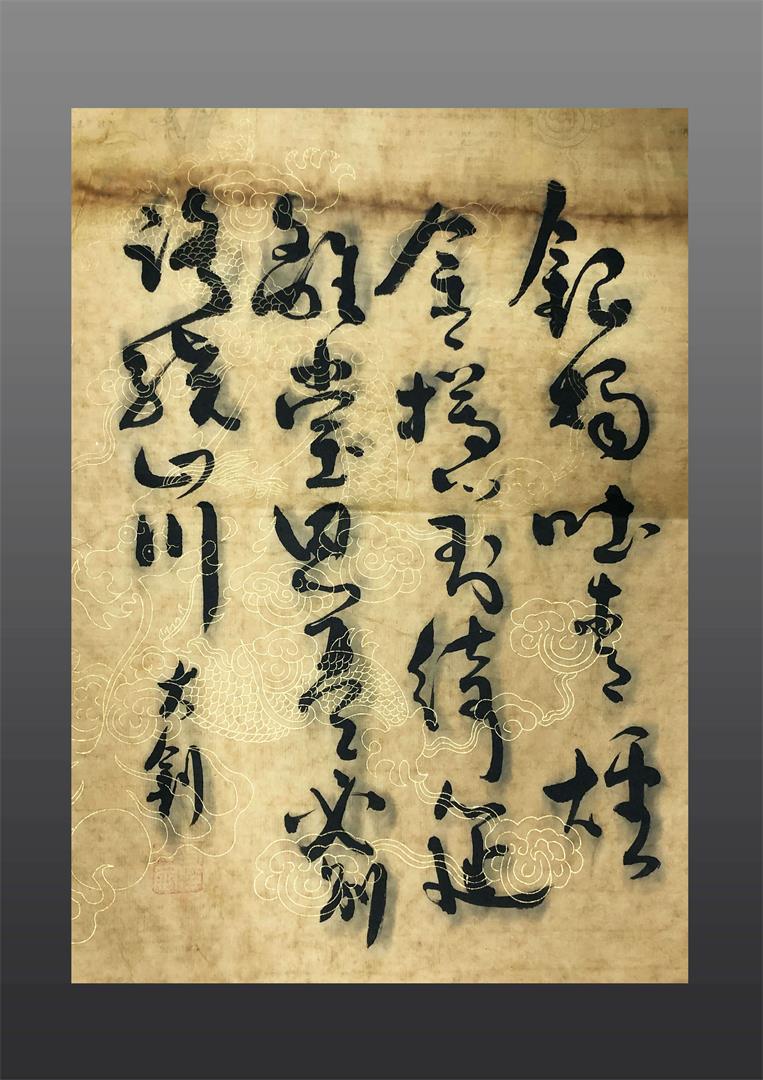 銀燭吐青煙
金樽對綺筵
離堂思琴瑟別
路繞山川
大釗